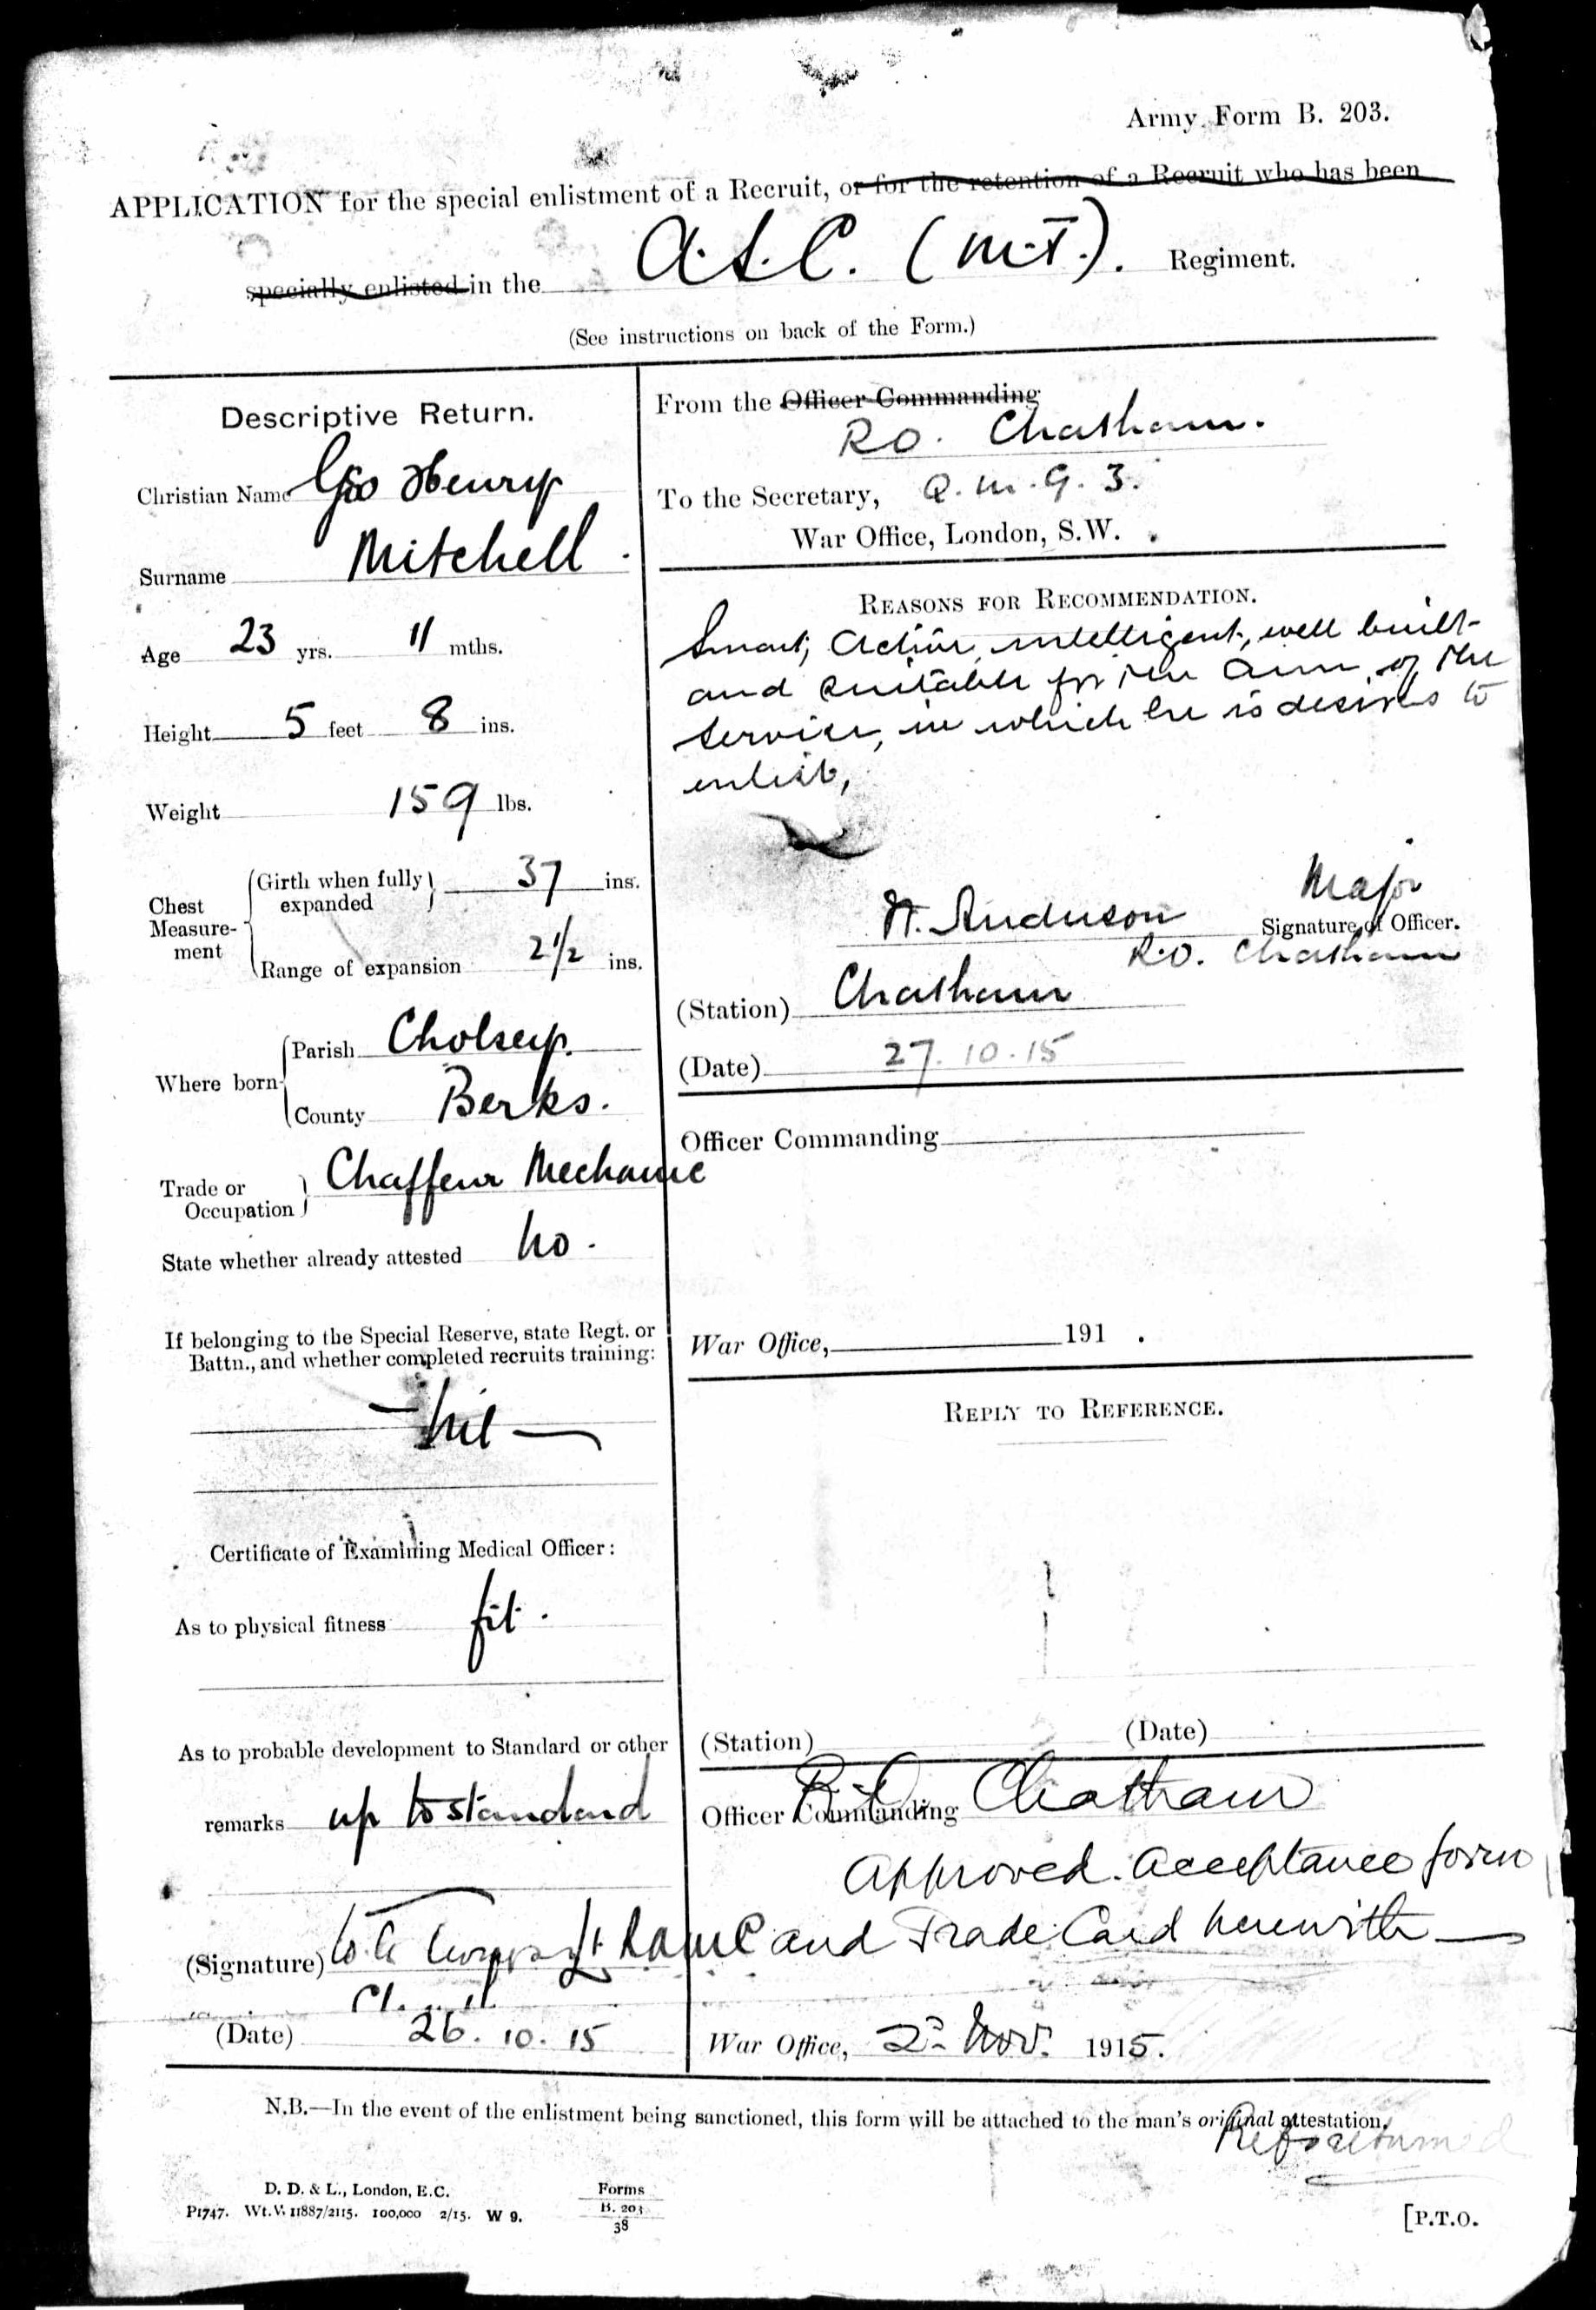 Army Form B. 203.
APPLICATION for the special enlistment of a Recruit, or for the retention of a Recruit who has been
specially enlisted in the A.S.C. (M.T.). Regiment.
(See instructions on back of the Form.)
Descriptive Return.
Christian Name Geo Henry
Surname Mitchell
Age 23 yrs. 11 mths.
Height 5 feet 8 ins.
Weight 159 lbs.
Chest Measure-ment
Girth when fully expanded 37 ins.
Range of expansion 2 1/2 ins.
Where born
Parish Cholsey.
County Berks.
Trade or Occupation Chaffeur Mechanic
State whether already attested No.
If belonging to the Special Reserve, state Regt. or
Battn., and whether completed recruits training:
— Nil —
Certificate of Examining Medical Officer:
As to physical fitness fit.
As to probable development to Standard or other
remarks up to standard
(Signature) Lt. RAMC
(Date) 26.10.15
From the Officer Commanding
R.O. Chatham.
To the Secretary, Q.M.G.3.
War Office, London, S.W.
REASONS FOR RECOMMENDATION.
Smart, Active, intelligent, well built
and suitable for the Arm of the
Service, in which he is desires to
enlist,
Major
Anderson Signature of Officer.
R.O. Chatham
(Station) Chatham
(Date) 27.10.15
Officer Commanding
War Office, 191 .
REPLY TO REFERENCE.
(Station) (Date)
Officer Commanding R.O. Chatham
Approved. Acceptance form
and Trade Card herewith —
War Office, 2nd Nov. 1915.
N.B.—In the event of the enlistment being sanctioned, this form will be attached to the man's original attestation.
returned
D. D. & L., London, E.C.
P1747. Wt.V. 11887/2115. 100,000 2/15. W 9.
Forms
B. 203
38
[P.T.O.